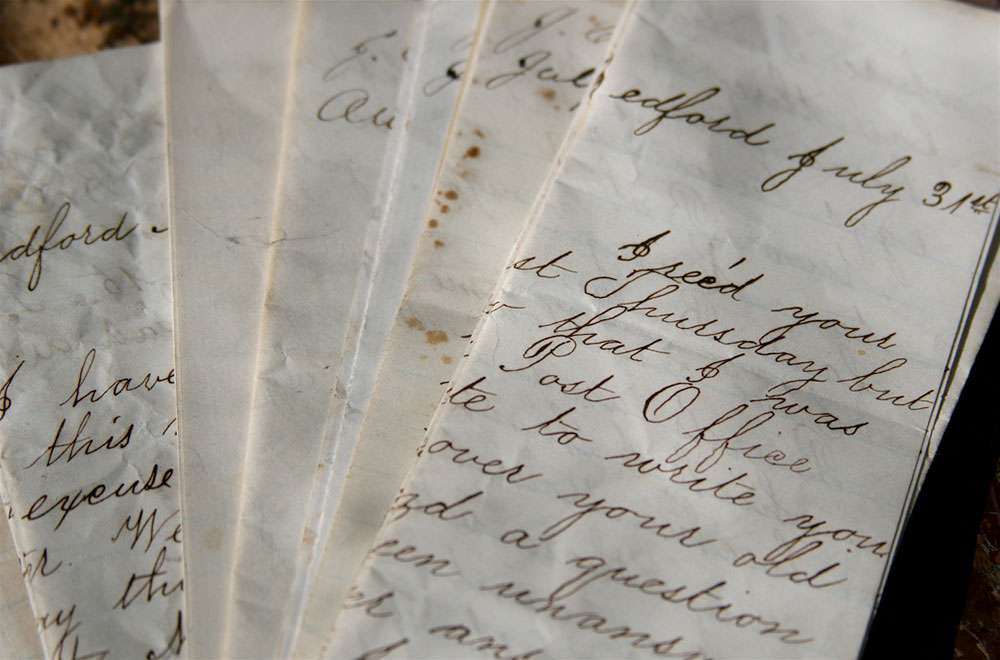 dford -
I have
this
excuse
r. We
ay thi
J.
Au
J.
Jul
edford July 31st
I rec'd your
st Thursday but
that I was
Post Office
te to write you
over your old
zd a question
een unansw
er ans